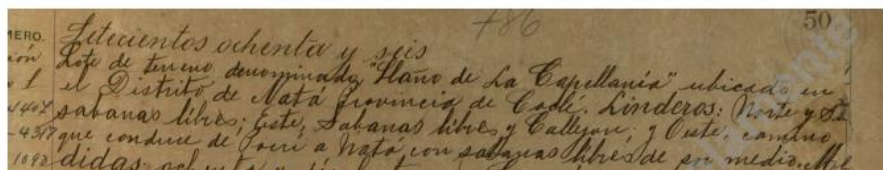 786
50
MERO.
Setecientos ochenta y seis
ión Lote de terreno denominado "Llano de La Capellanía" ubicado en
el Distrito de Natá Provincia de Coclé. Linderos: Norte y
sabanas libres; Este, Sabanas libres y Callejon; y Oeste, camino
que conduce de Pocrí a Natá con sabanas libres de por medio. Me
1090 didas: ochenta y